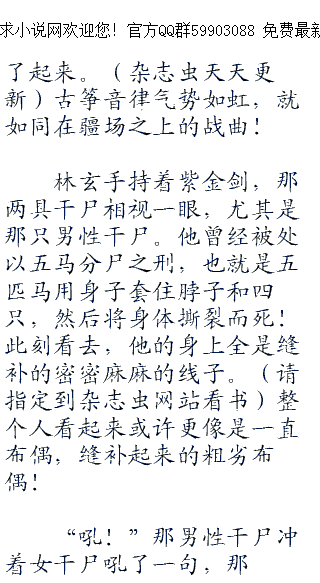 求小说网欢迎您！官方QQ群59903088 免费最新
了起来。（杂志虫天天更
新）古筝音律气势如虹，就
如同在疆场之上的战曲！
林玄手持着紫金剑，那
两具干尸相视一眼，尤其是
那只男性干尸。他曾经被处
以五马分尸之刑，也就是五
匹马用身子套住脖子和四
只，然后将身体撕裂而死！
此刻看去，他的身上全是缝
补的密密麻麻的线子。（请
指定到杂志虫网站看书）整
个人看起来或许更像是一直
布偶，缝补起来的粗劣布
偶！
“吼！”那男性干尸冲
着女干尸吼了一句，那